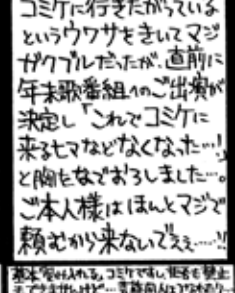 コミケに行きたがっている
というウワサをきいてマジ
ガクブルだったが、直前に
年末歌番組へのご出演が
決定し「これでコミケに
来るヒマなどなくなった…!」
と胸をなでおろしました…。
ご本人様はほんとマジで
頼むから来ないでぇぇ…!!
コミケですし、